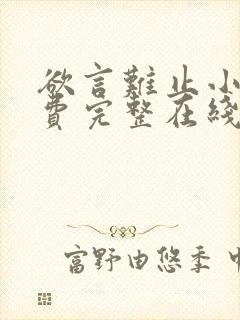 欲言難止小
費完整在綫
富野由悠季 中